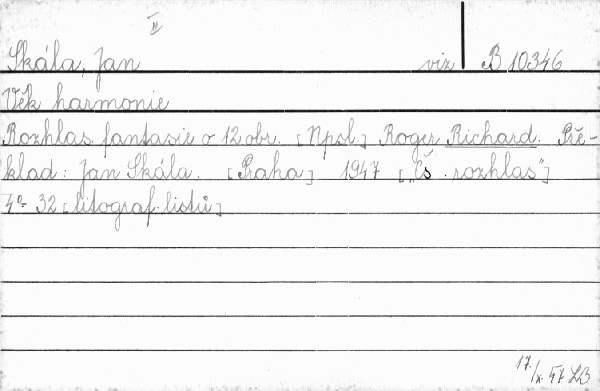 II
Skála, Jan viz B 10346
Věk harmonie
Rozhlas. fantasie o 12 obr. [Npsl.] Roger Richard. Pře-
klad: Jan Skála. [Praha] 1947 [„Čs. rozhlas"]
4° 32 [litograf. listů]
17./X. 47 LB